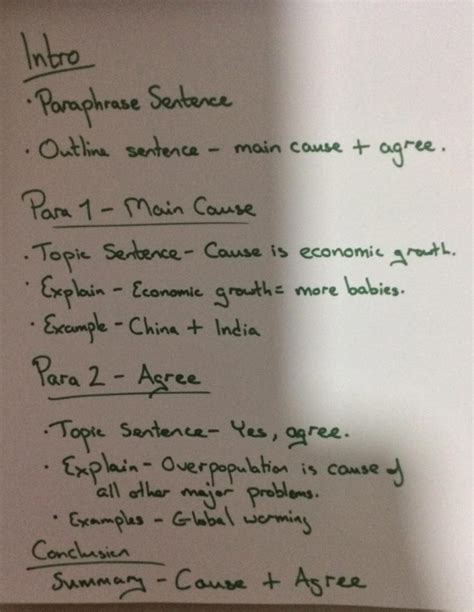 Intro
· Paraphrase Sentence
· Outline sentence - main cause + agree.
Para 1 - Main Cause
· Topic Sentence - Cause is economic growth.
· Explain - Economic growth = more babies.
· Example - China + India
Para 2 - Agree
· Topic Sentence - Yes, agree.
· Explain - Overpopulation is cause of
all other major problems.
· Examples - Global worming
Conclusion
Summary - Cause + Agree